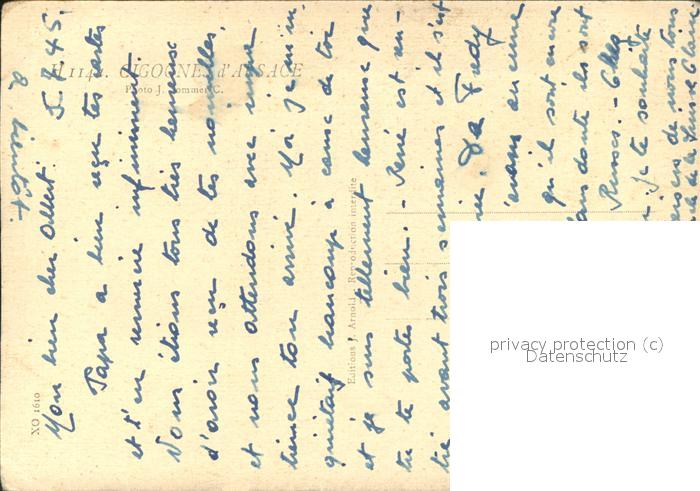 H 1142. CIGOGNES d'ALSACE
Photo J. Sommer C.
Editions J. Arnold. Reproduction interdite
XO 1610
à bientôt.
5.7.45.
Mon bien cher Albert.
Papa a bien reçu tes cartes
et t'en remercie infiniment
Nous étions tous très heureux
d'avoir reçu de tes nouvelles,
et nous attendons avec impa
tience ton arrivé. Moi je m'in-
quiétais beaucoup à cause de toi
et je suis tellement heureuse que
tu te portes bien. - René est en-
tré avant trois semaines et il s'est
De Fredy
avons eu une
qu'il sont encore
sans doute ils sont
Russes. -
je te souhaite
de nous tous
privacy protection (c)
Datenschutz